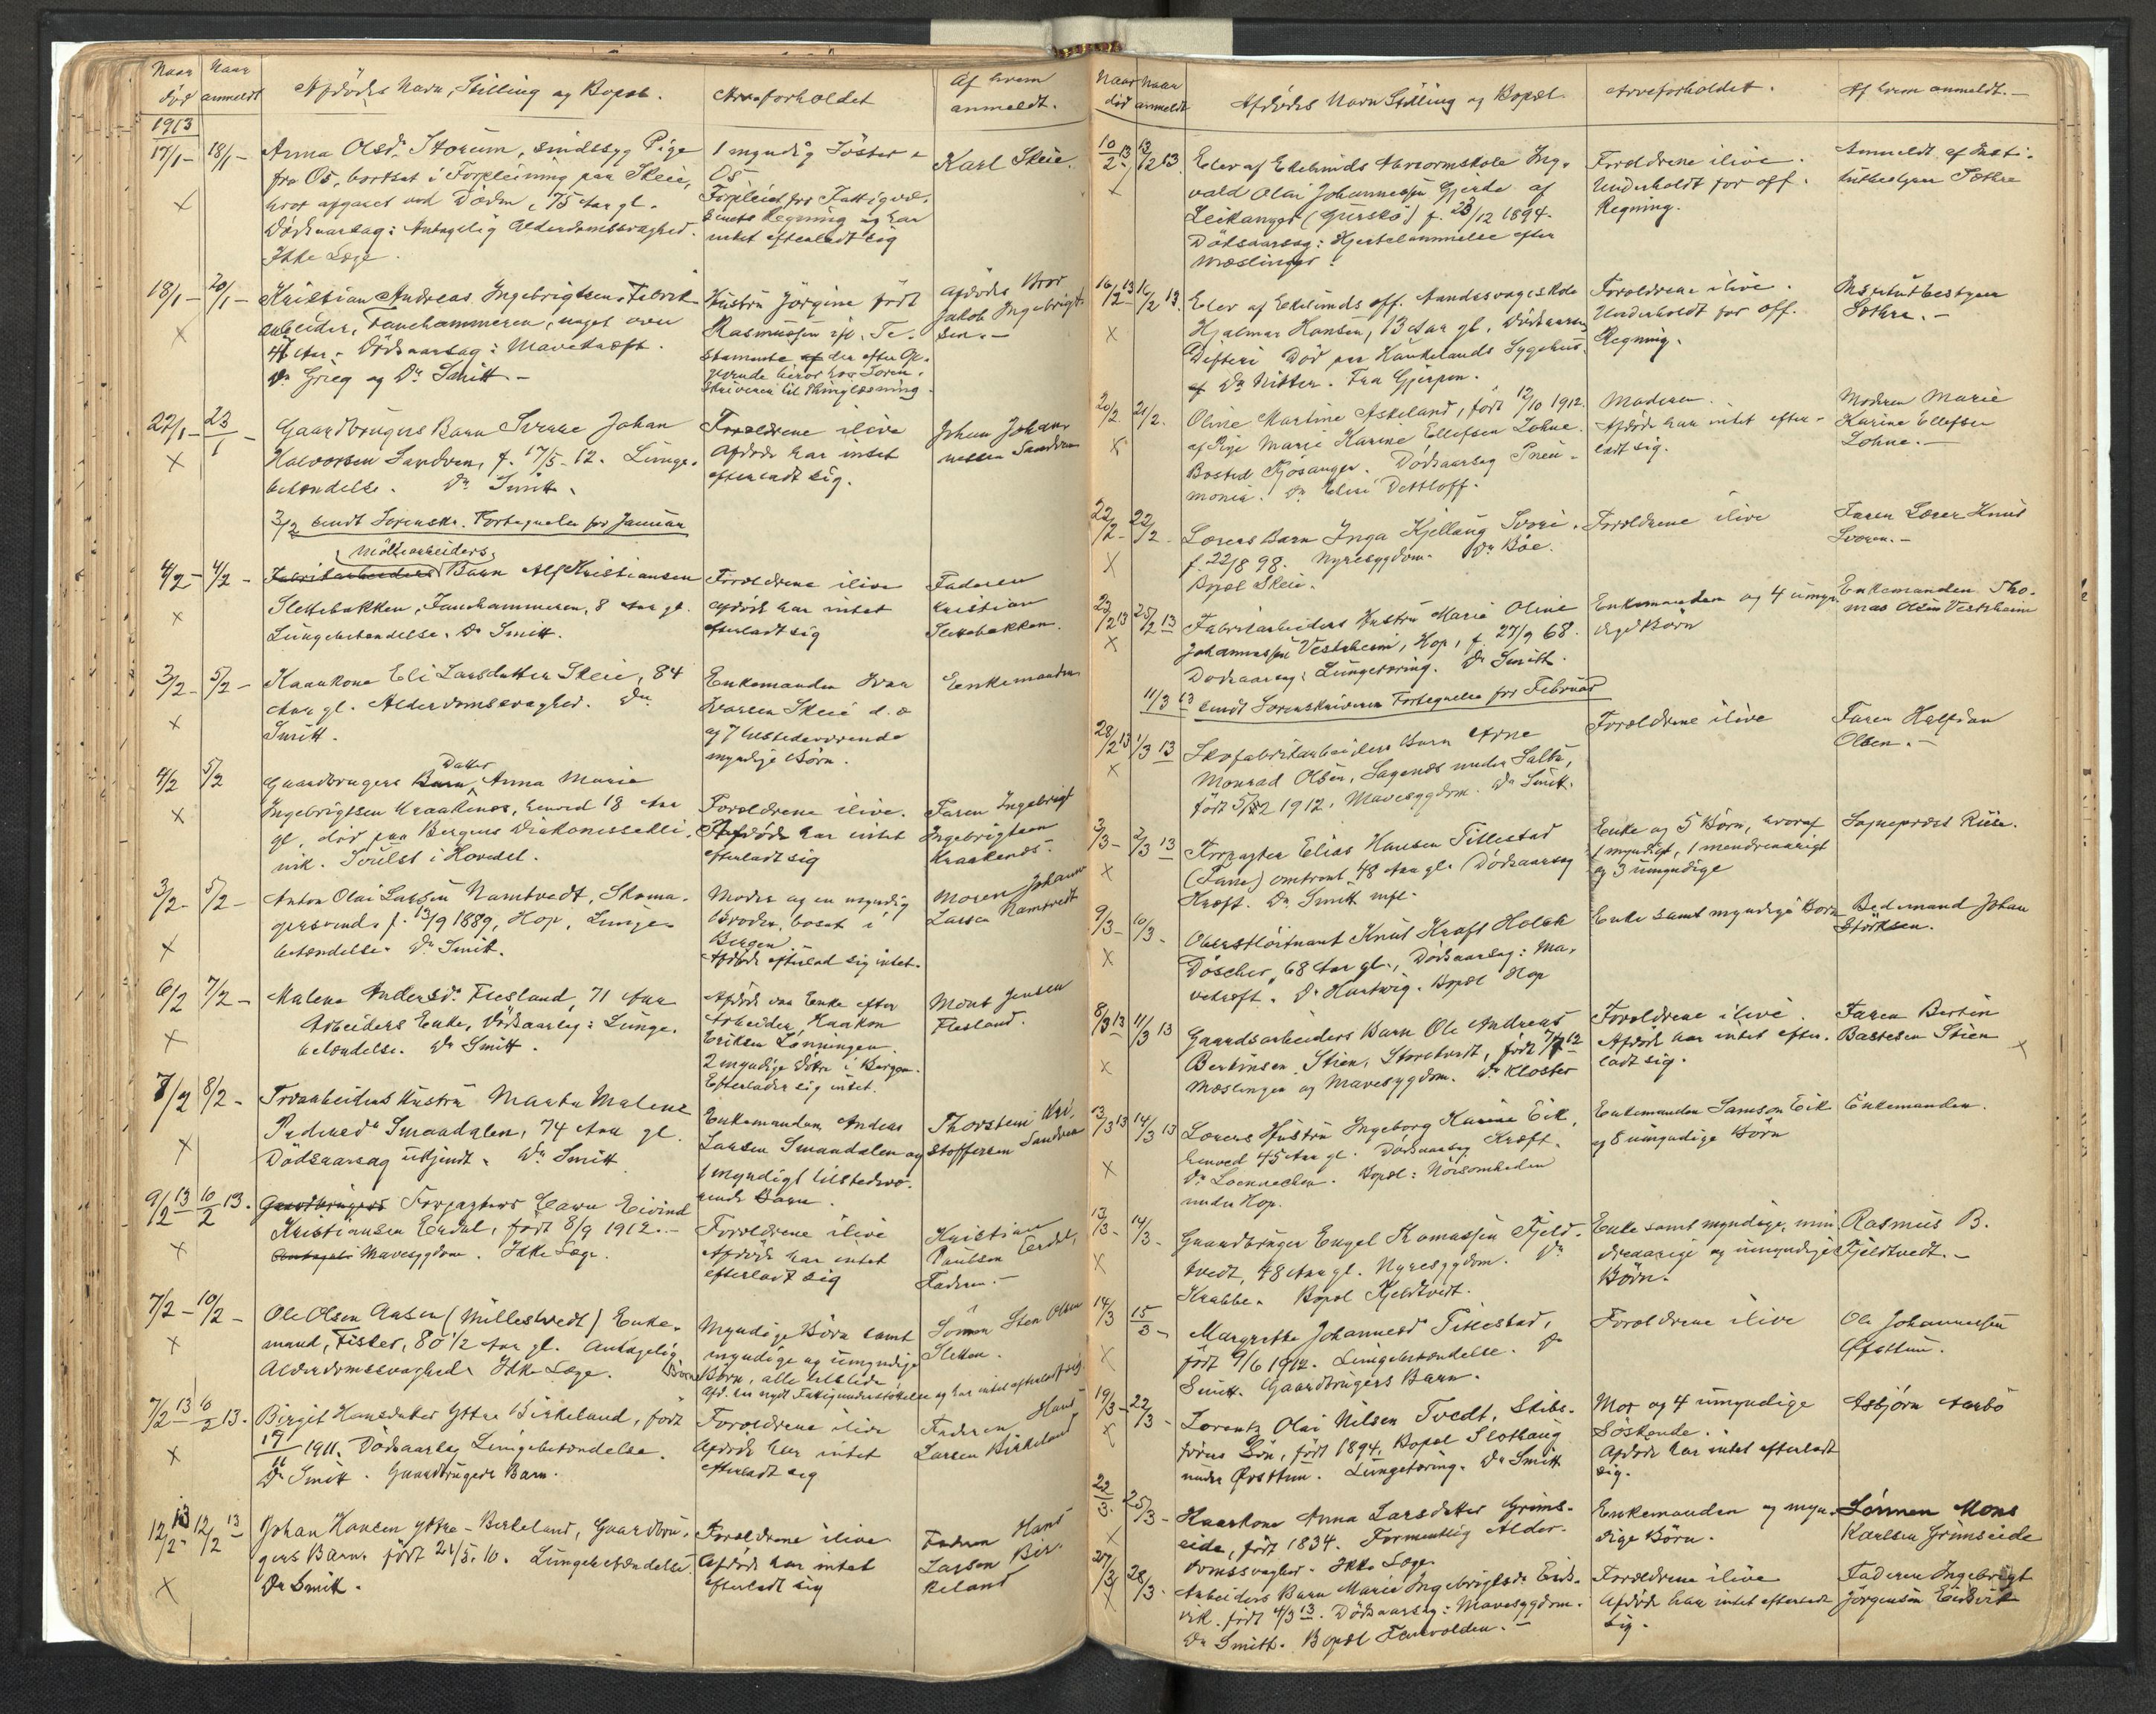 Naar død
Naar anmeldt
Afdødes Navn, Stilling og Bopæl.
Arveforholdet
Af hvem anmeldt.
1913
17/1 - 18/1 -
Anna Olsd. Storum, sindssyg Pige
fra Os, bortsat i Forpleining paa Skeie,
hvor afgaaet ved Døden, 75 Aar gl.
Dødsaarsag: Antagelig Alderdomssvaghed.
Ikke Læge.
1 myndig Søster
Os
Forpleiet for Fattigvæ-
senets Regning og har
intet efterladt sig
Karl Skeie.
18/1 - 20/1 -
Kristian Andreas Ingebrigtsen, Fabrik-
arbeider, Fanehammeren, noget over
Aar. Dødsaarsag: Mavekræft.
Dr Grieg og Dr Smitt. -
Hustru Jørgine født
Rasmussen ifl. Te-
stamente der efter Op-
givende beror hos Soren-
skriveren til Thinglæsning.
Afdødes Bror
Jakob Ingebrigt-
sen. -
22/1 - 23/1 -
Gaardbrugers Barn Sverre Johan
Halvorsen Sandven, f. 17/5 - 12. Lunge-
betændelse. Dr Smitt.
Forældrene ilive
Afdøde har intet
efterladt sig.
Johan Johan-
nessen Sandven
3/2 sendt Sorenskr. Fortegnelse for Januar
4/2 - 4/2 -
Møllearbeiders
Fabrikarbeiders Barn Alf Kristiansen
Slettebakken, Fanehammeren, 8 Aar gl.
Lungebetændelse. Dr Smitt.
Forældrene ilive
Afdøde har intet
efterladt sig
Faderen
Kristian
Slettebakken.
3/2 - 5/2 -
Kaarkone Eli Larsdatter Skeie, 84
Aar gl. Alderdomssvaghed. Dr
Smitt.
Enkemanden Ivar
Larsen Skeie d.æ
og 7 tilstedeværende
myndige Børn.
Enkemanden
4/2 5/2
Gaardbrugers Barn Datter, Anna Marie
Ingebrigtsen Kraakenes, henved 18 Aar
gl., død paa Bergens Diakonisseklin-
nik. Svulst i Hovedet.
Forældrene ilive.
Afdøde har intet
efterladt sig
Faren Ingebrigt
Ingebrigtsen
Kraakenes.
3/2 - 5/2 -
Anton Olai Larsen Namtvedt, Skoma-
gersvend, f. 13/9 1889, Hop, Lunge-
betændelse. Dr Smitt.
Moder og en myndig
Broder, bosat i
Bergen.
Afdøde efterlod sig intet.
Moren Johanne
Larsen Namtvedt
6/2 7/2 -
Malene Andersd. Flesland, 71 Aar
Arbeiders Enke, Dødsaarsag: Lunge-
betændelse. Dr Smitt.
Afdøde var Enke efter
Arbeider Haakon
Eriksen Lønningen.
2 myndige Døtre i Bergen.
Efterlader sig intet.
Mons Jensen
Flesland.
8/2 8/2 -
Træarbeiders Hustru Marta Malene
Pedersd. Smaadalen, 74 Aar gl.
Dødsaarsag ukjendt. Dr Smitt
Enkemanden Andreas
Larsen Smaadalen og
1 myndigt tilstedevæ-
rende Barn.
Thorstein Kri-
stoffersen Sandven
9/2 13 10/2 13.
Gaardbrugers Forpagters Barn Eivind
Kristiansen Erdal, født 8/9 1912. -
Antagelig Mavesygdom. Ikke Læge.
Forældrene ilive
Afdøde har intet
efterladt sig
Kristian
Paulsen Erdal,
Faderen. -
7/2 - 10/2 -
Ole Olsen Aasen (Millestvedt) Enke-
mand, Fisker, 80 1/2 Aar gl. Antagelig
Alderdomssvaghed. Ikke Læge.
Myndige Børn samt
myndige og umyndige
Børnebørn, alle tilstede
Afd. har nydt Fattigunderstøttelse og har intet efterladt sig.
Sønnen Sten Olsen
Sletten.
7/2 13 10/2 13.
Birgit Hansdatter Ytre Birkeland, født
19/11 1911. Dødsaarsag Lungebetændelse.
Dr Smitt. Gaardbrugers Barn.
Forældrene ilive
Afdøde har intet
efterladt sig
Faderen Hans
Larsen Birkeland
12/2 13 12/2 13
Johan Hansen Ytre-Birkeland, Gaardbru-
gers Barn, født 21/5.10. Lungebetændelse.
Dr Smitt.
Forældrene ilive
Afdøde har intet
efterladt sig
Faderen Hans
Larsen Bir-
keland
Naar død
Naar anmeldt
Afdødes Navn Stilling og Bopæl
Arveforholdet.
Af hvem anmeldt. -
10/2 13 13/2 13
Elev af Ekelunds Aarsormskole Ing-
vald Olai Johannessen Gjerde af
Leikanger (Gurskø) f. 23/12 1894.
Dødsaarsag: Hjertelammelse efter
Mæslinger.
Forældrene ilive.
Underholdt for off.
Regning.
Anmeldt af Insti-
tutbestyrer Sæthre
16/2 13 16/2 13.
Elev af Ekelunds off. Aandssvageskole
Hjalmar Hansen, 13 Aar gl. Dødsaarsag
Difteri Død paa Haukelands Sygehus.
Dr Nitter. Fra Gjerpen.
Forældrene ilive.
Underholdt for off.
Regning.
Institutbestyrer
Sæthre. -
20/2. 21/2.
Oline Martine Askeland, født 12/10 1912.
af Pige Marie Karine Ellefsen Lohne.
Bosted Fjøsanger. Dødsaarsag Pneu-
monia. Dr Elise Dettloff.
Moderen.
Afdøde har intet efter-
ladt sig.
Moderen Marie
Karine Ellefsen
Lohne. -
22/2 - 22/2 -
Lærers Barn Inga Kjellaug Svoren.
f. 22/8 98. Nyresygdom. Dr Bøe.
Bopæl Skeie.
Forældrene ilive
Faren Lærer Knut
Svoren. -
23/2 13 25/2 13
Fabrikarbeiders Hustru Marie Oline
Johannessen Vestrheim, Hop, f. 27/9 68.
Dødsaarsag: Lungetæring. Dr Smitt.
Enkemanden og 4 umyn-
dige Børn
Enkemanden Tho-
mas Olsen Vestrheim
11/3 13 sendt Sorenskriveren Fortegnelse for Februar
28/2 13 1/3 13
Skofabrikarbeiders Barn Arne
Monrad Olsen, Sagenes under Salbu,
født 5/2 1912. Mavesygdom. Dr Smitt.
Forældrene ilive
Faren Halfdan
Olsen. -
2/3 - 2/3 13
Forpagter Elias Hansen Tillestad
(Fane) omtrent 48 Aar gl. Dødsaarsag
Kræft. Dr Smitt mfl.
Enke og 5 Børn, hvoraf
1 myndigt, 1 mindreaarigt
og 3 umyndige
Sogneprest Riise.
9/3 - 10/3 -
Oberstløitnant Knut Kraft Holck
Døscher, 68 Aar gl., Dødsaarsag: Ma-
vekræft. Dr Hartwig. Bopæl Hop
Enke samt myndige Børn
Bedemand Johan
Størksen.
8/3 13 11/3 13
Gaardsarbeiders Barn Ole Andreas
Bertinsen Stien, Storetvedt, født 7/7 12
Mæslinger og Mavesygdom. Dr Kloster
Forældrene ilive.
Afdøde har intet efter-
ladt sig.
Faren Bertin
Bastesen Stien
13/3 13 14/3 13
Lærers Hustru Ingeborg Karine Eik,
henved 45 Aar gl. Dødsaarsag Kræft.
Dr Loennechen. Bopæl: Nøisomheden
under Hop.
Enkemanden Samson Eik
og 8 umyndige Børn
Enkemanden.
13/3 - 14/3 -
Gaardbruger Engel Thomassen Fjeld-
tvedt, 48 Aar gl. Nyresygdom. Dr
Krabbe. Bopæl Fjeldtvedt.
Enke samt myndige, min-
dreaarige og umyndige
Børn.
Rasmus B.
Fjeldtvedt. -
14/3 15/3 -
Margrethe Johannesd. Titlestad,
født 9/6 1912. Lungebetændelse. Dr
Smitt. Gaardbrugers Barn.
Forældrene ilive
Ole Johannessen
Øfsttun.
19/3 - 22/3 -
Lorentz Olai Nilsen Tvedt, Skibs-
førers Søn, født 1894, Bopæl Slothaug
under Øvsttun. Lungetæring. Dr Smitt
Mor og 4 umyndige
Søskende.
Afdøde har intet efterladt
sig.
Asbjørn Aarbø
22/3. 25/3 -
Kaarkone Anna Larsdatter Grims-
eide, født 1834. Formentlig Alder-
domssvaghed. Ikke Læge.
Enkemanden og myn-
dige Børn.
Sønnen Mons
Karlsen Grimseide
27/3 28/3.
Arbeiders Barn Marie Ingebrigtsd. Eids-
vik. født 4/3 13. Dødsaarsag: Mavesygdom.
Dr Smitt. Bopæl Fanevolden. -
Forældrene ilive
Afdøde har intet efterladt
sig.
Faderen Ingebrigt
Jørgensen Eidsvik